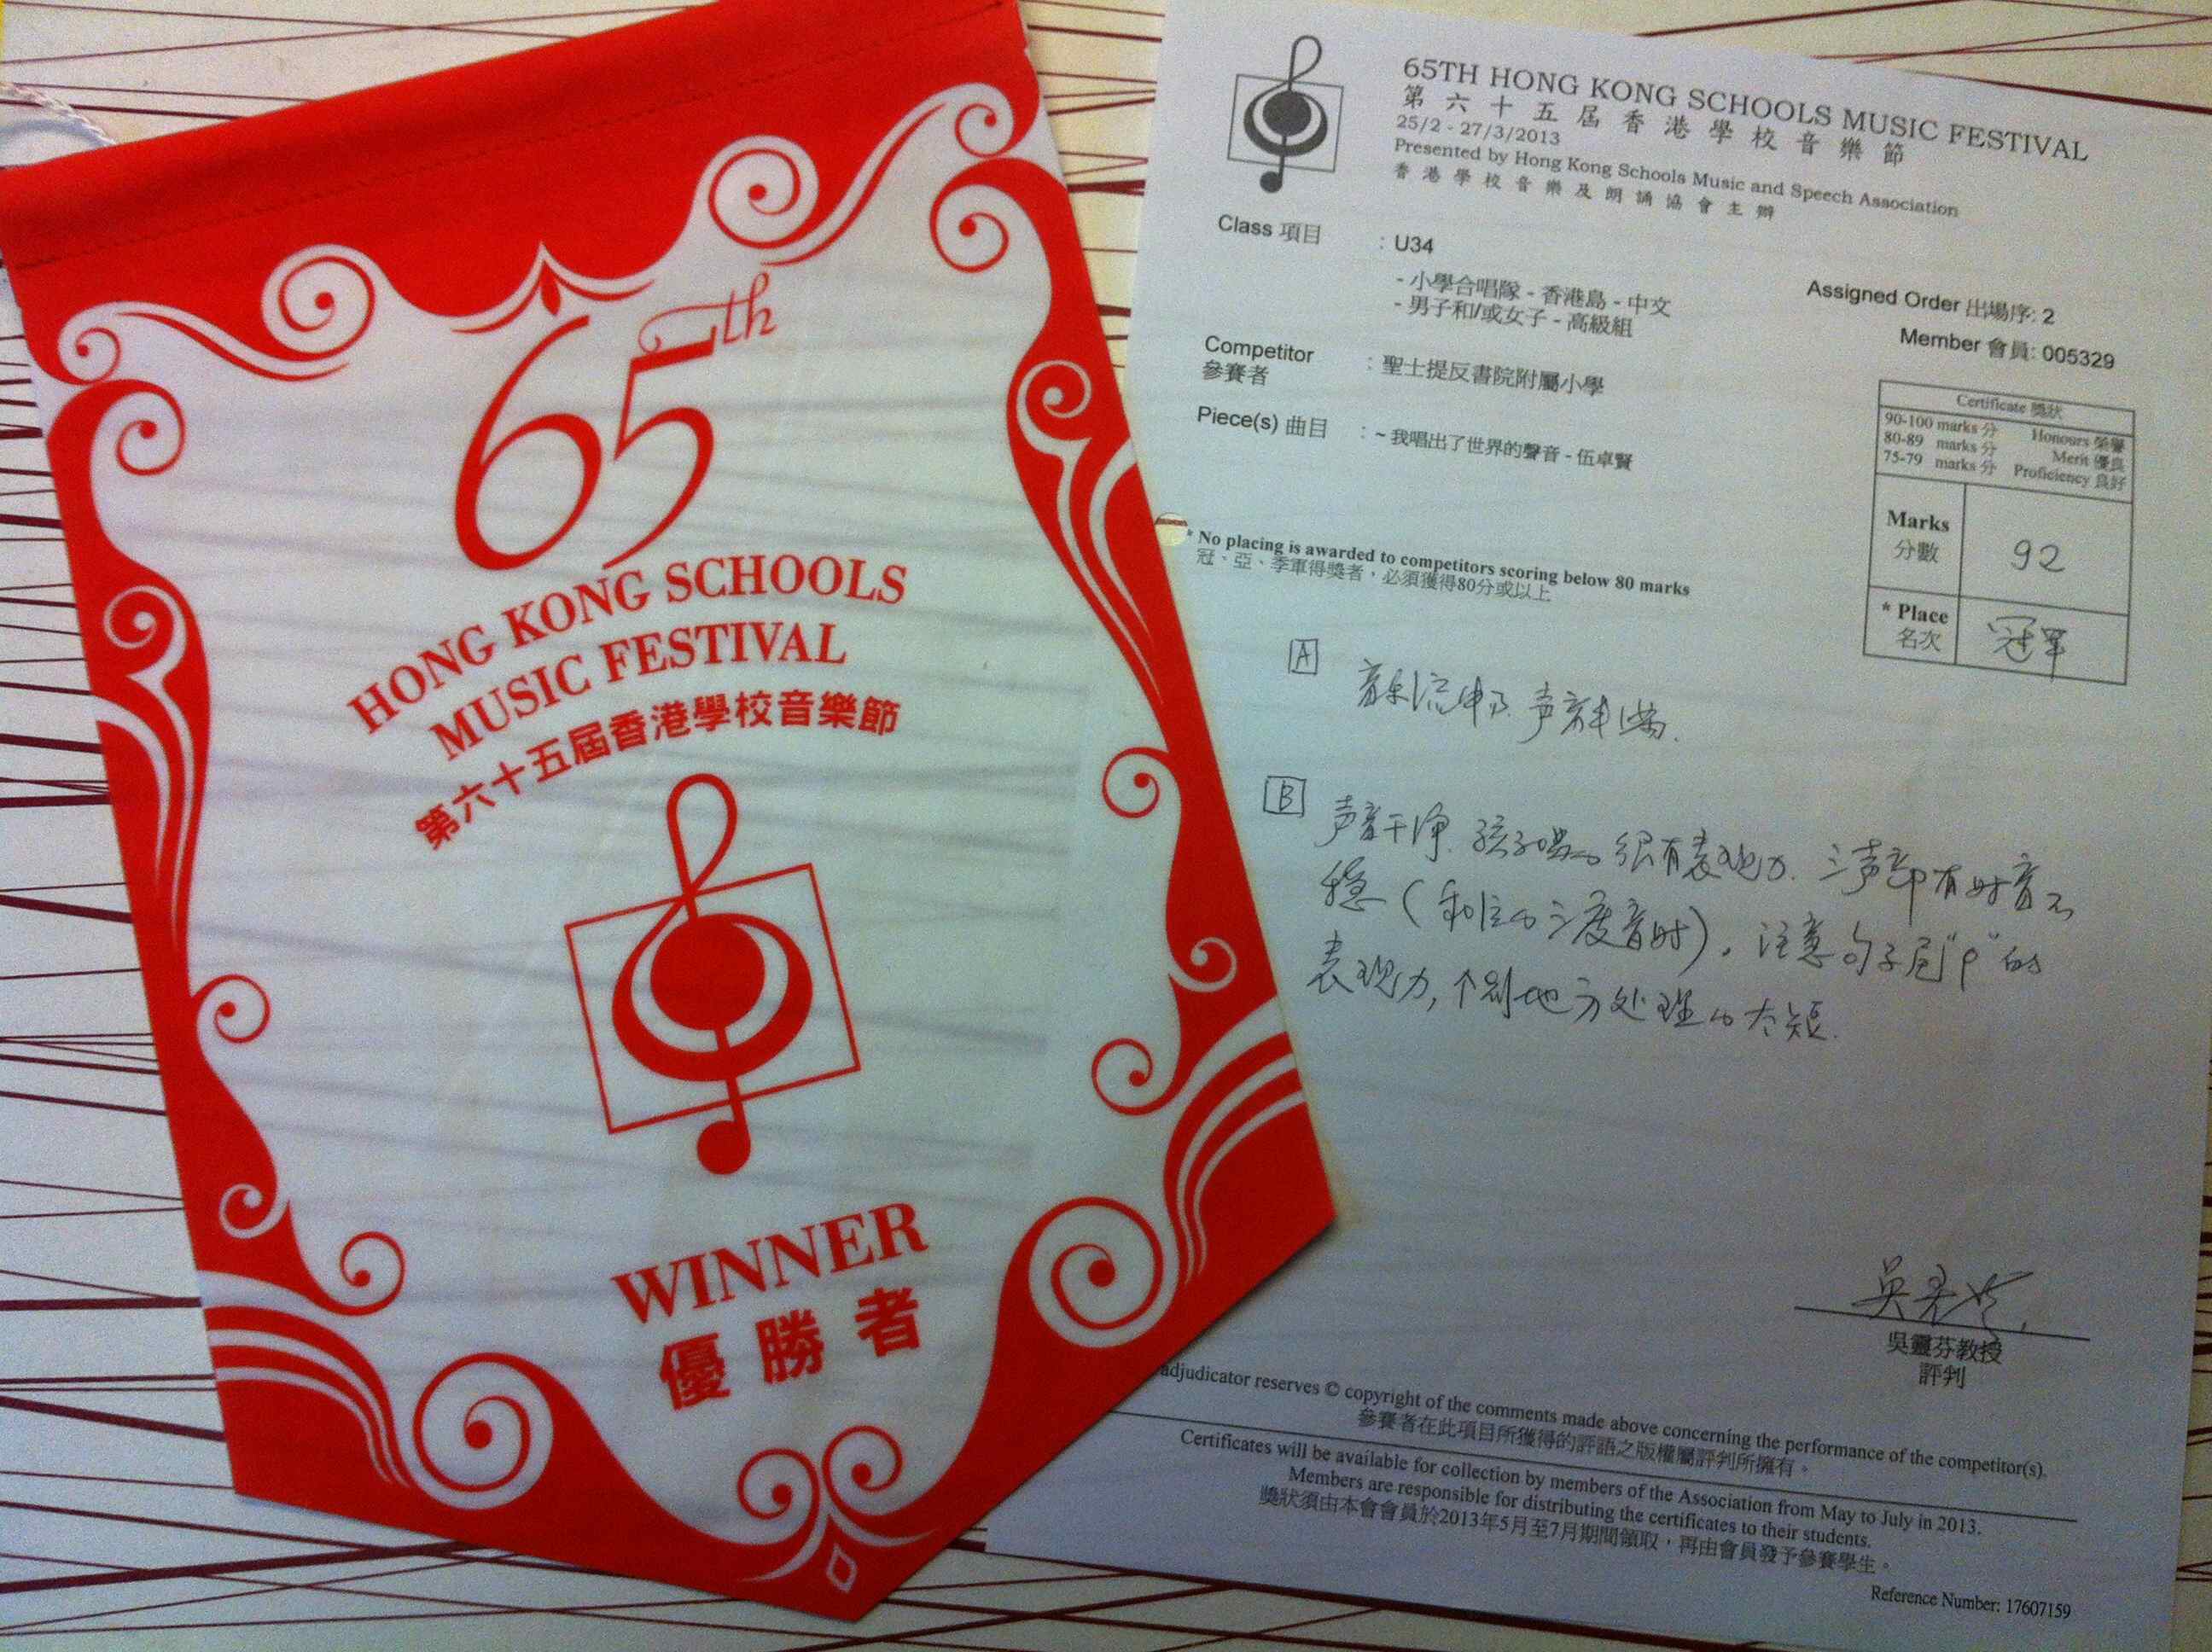 65th
HONG KONG SCHOOLS
MUSIC FESTIVAL
第六十五屆香港學校音樂節
WINNER
優勝者
65TH HONG KONG SCHOOLS MUSIC FESTIVAL
第六十五屆香港學校音樂節
25/2 - 27/3/2013
Presented by Hong Kong Schools Music and Speech Association
香港學校音樂及朗誦協會主辦
Class 項目 : U34
- 小學合唱隊 - 香港島 - 中文
- 男子和/或女子 - 高級組
Assigned Order 出場序: 2
Member 會員: 005329
Competitor : 聖士提反書院附屬小學
參賽者
Piece(s) 曲目 : ~ 我唱出了世界的聲音 - 伍卓賢
Certificate 獎狀
90-100 marks 分 Honours 榮譽
80-89 marks 分 Merit 優良
75-79 marks 分 Proficiency 良好
Marks 92
分數
* Place 冠军
名次
* No placing is awarded to competitors scoring below 80 marks
冠、亞、季軍得獎者，必須獲得80分或以上
A 音乐流伸 声音丰满.
B 声音干净. 孩子唱的很有表现力. 三声部有时音不
稳（和弦的三度音时）. 注意句子尾"p"的
表现力, 个别地方处理的太短.
吳靈芬教授
評判
adjudicator reserves © copyright of the comments made above concerning the performance of the competitor(s).
參賽者在此項目所獲得的評語之版權屬評判所擁有。
Certificates will be available for collection by members of the Association from May to July in 2013.
Members are responsible for distributing the certificates to their students.
獎狀須由本會會員於2013年5月至7月期間領取，再由會員發予參賽學生。
Reference Number: 17607159